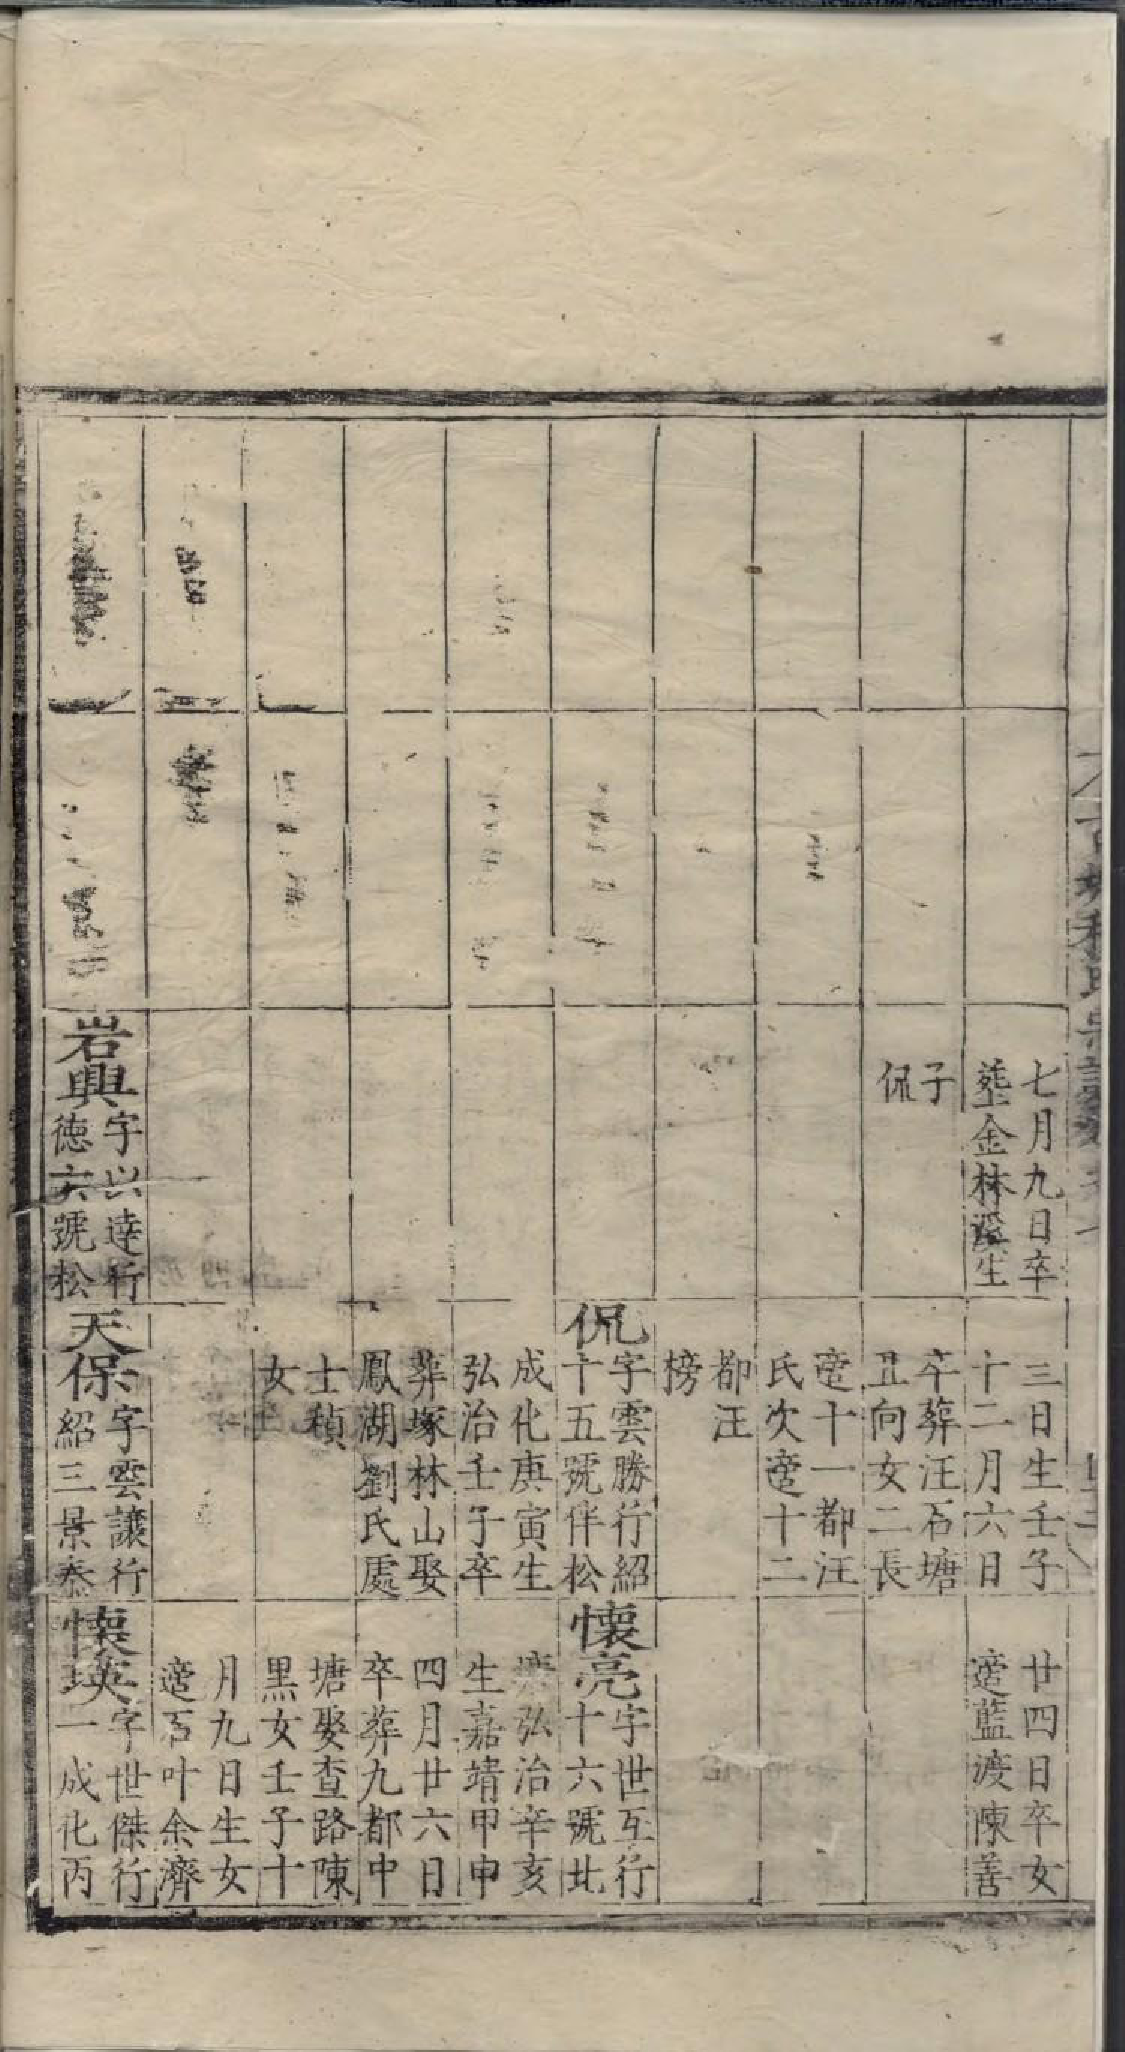 七月九日卒
塟金林溪生
子
侃
三日生壬子
十二月六日
卒葬汪石塘
丑向女二長
適十一都汪
氏次適十二
都汪
榜
侃
字雲勝行紹
十五號伴松
成化庚寅生
弘治壬子卒
葬塚林山娶
鳳湖劉氏處
士禎
女
廿四日卒女
適藍渡陳善
懷亮
字世互行
十六號北
弘治辛亥
生嘉靖甲申
四月廿六日
卒葬九都中
塘娶查路陳
黑女壬子十
月九日生女
適石叶余濟
岩興
字以達行
德六號松
天保
字雲讓行
紹三景泰
懷瑛
字世傑行
一成化丙